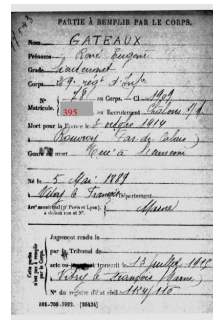 PARTIE À REMPLIR PAR LE CORPS.
Nom GATEAUX
Prénoms René Eugène
Grade Lieutenant
Corps 269e Régt d'Infie
N° au Corps. — Cl. 1909
Matricule. 395 au Recrutement Châlons s/M
Mort pour la France le 3 octobre 1914
à Rouvroy Pas de Calais
Genre de mort Tué à
Né le 5 Mai 1889
à Vitry le François Département
Arrt municipal (pr Paris et Lyon), à défaut rue et N°. Marne
Jugement rendu le
par le Tribunal de
acte ou jugement transcrit le 13 juillet 1915
à Vitry le François (Marne)
N° du registre d'état civil